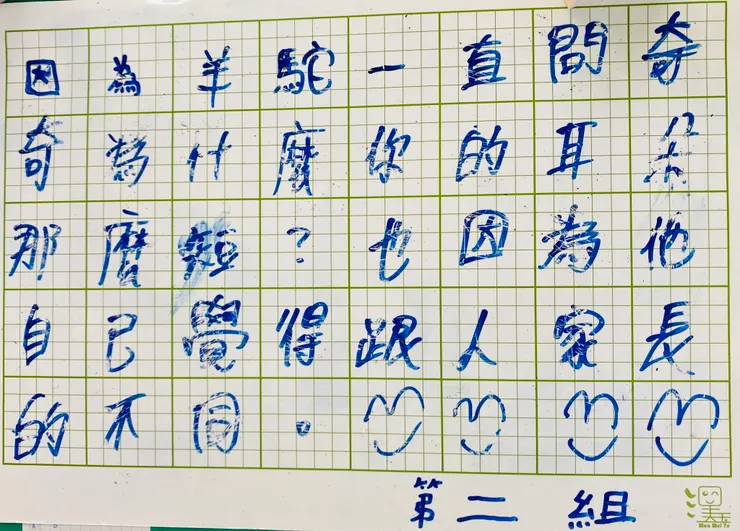 因為羊駝一直問奇
奇為什麼你的耳朵
那麼短？也因為他
自己覺得跟人家長
的不同。
第二組